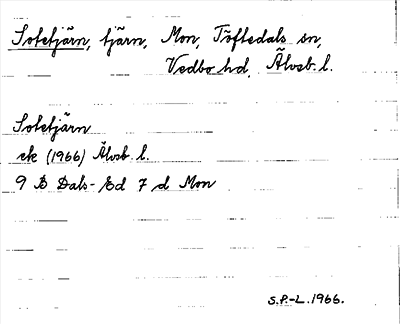 Sotetjärn, tjärn, Mon, Töftedals sn,
Vedbo hd, Älvsb. l.
Sotetjärn
ek (1966) Älvsb. l.
9 B Dals-Ed 7 d Mon
S.P.-L. 1966.